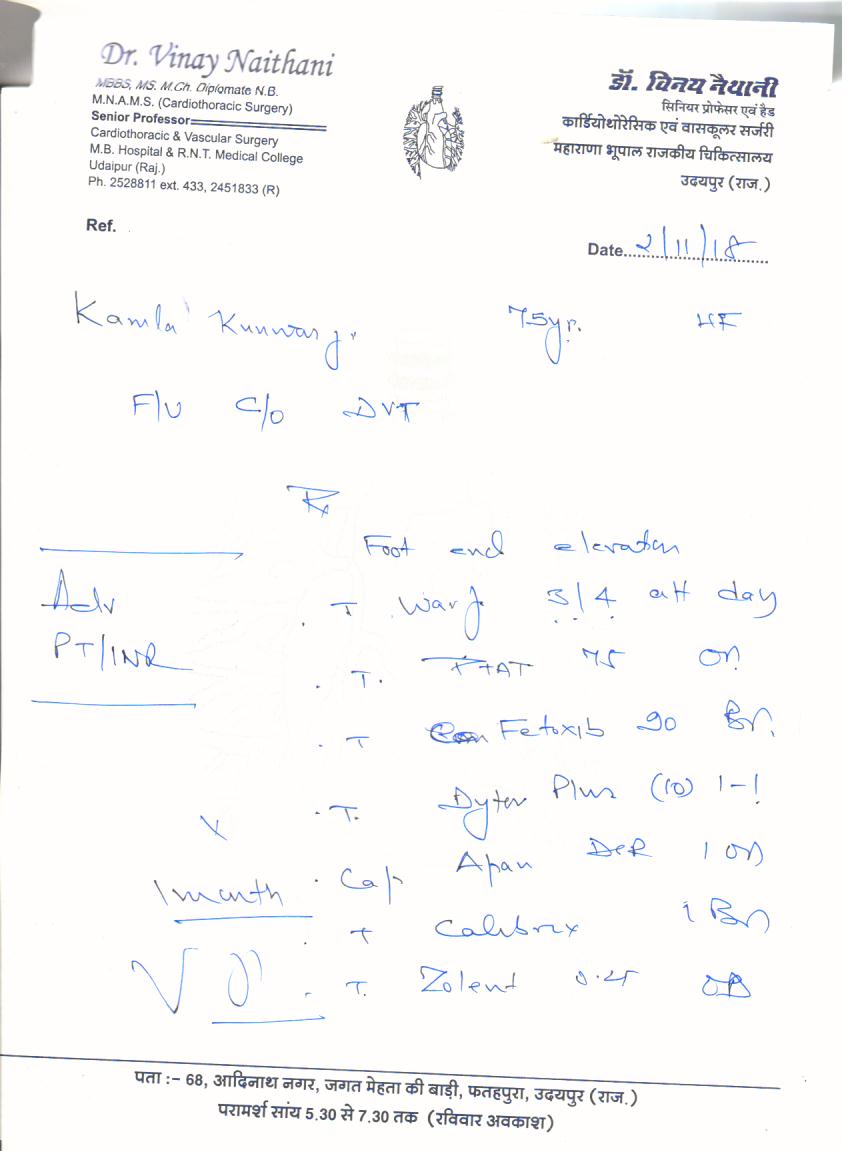 Dr. Vinay Naithani
MBBS, MS. M.Ch. Diplomate N.B.
M.N.A.M.S. (Cardiothoracic Surgery)
Senior Professor
Cardiothoracic & Vascular Surgery
M.B. Hospital & R.N.T. Medical College
Udaipur (Raj.)
Ph. 2528811 ext. 433, 2451833 (R)
डॉ. विनय नैथानी
सिनियर प्रोफेसर एवं हैड
कार्डियोथोरेसिक एवं वासकूलर सर्जरी
महाराणा भूपाल राजकीय चिकित्सालय
उदयपुर (राज.)
Ref.
Date 2/11/18
Kamla Kunwar ji 75yr. HF
F/U C/O DVT
Rx
Foot end elevation
Adv
PT/INR
T Warf 3/4 alt day
T. 75 OD
T Fetoxib 90 BD
T. Dytor Plus (10) 1-1
x 1 month
Cap DSR 1 OD
T 1 BD
T. Zolent OD
पता :- 68, आदिनाथ नगर, जगत मेहता की बाड़ी, फतहपुरा, उदयपुर (राज.)
परामर्श सांय 5.30 से 7.30 तक (रविवार अवकाश)